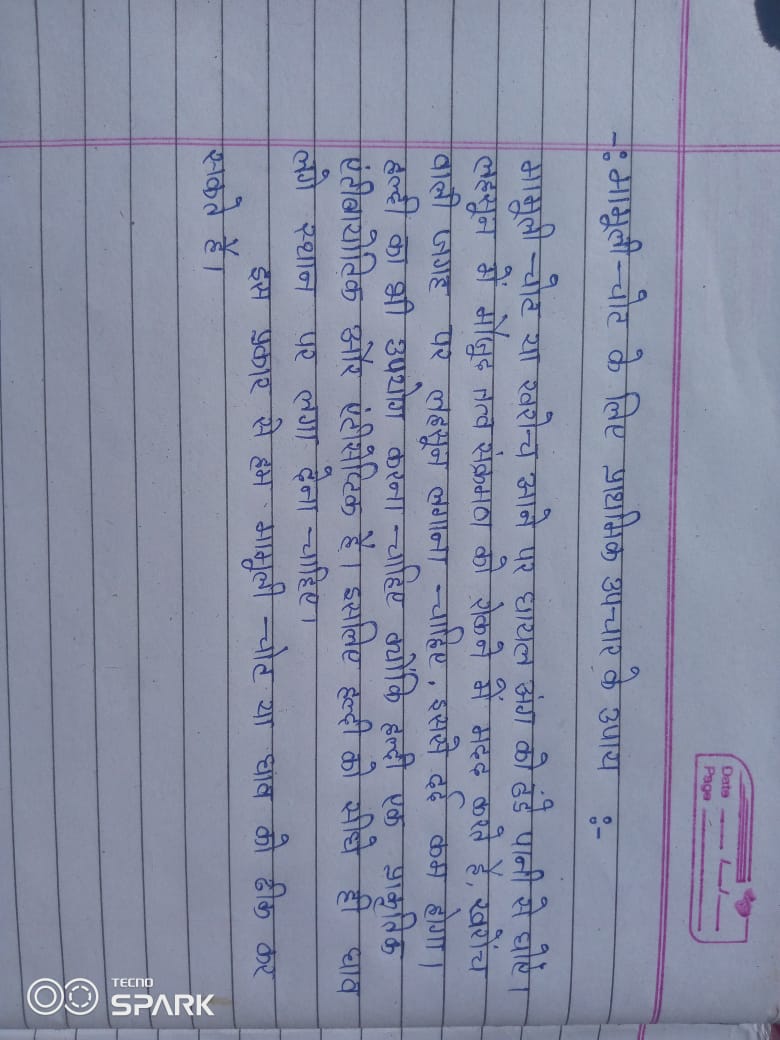 -: मामूली चोट के लिए प्राथमिक उपचार के उपाय :-
मामूली चोट या खरोच आने पर घायल अंग को ठंडे पानी से धोएं।
लहसून में मौजुद तत्व संक्रमण को रोकने में मदद करते है, खरोंच
वाली जगह पर लहसून लगाना चाहिए, इससे दर्द कम होगा।
हल्दी का भी उपयोग करना चाहिए क्योंकि हल्दी एक प्राकृतिक
एंटीबायोटिक और एंटीसेप्टिक है। इसलिए हल्दी को सीधे ही घाव
लगे स्थान पर लगा देना चाहिए।
इस प्रकार से हम मामूली चोट या घाव को ठीक कर
सकते हैं।
Date
Page
TECNO
SPARK